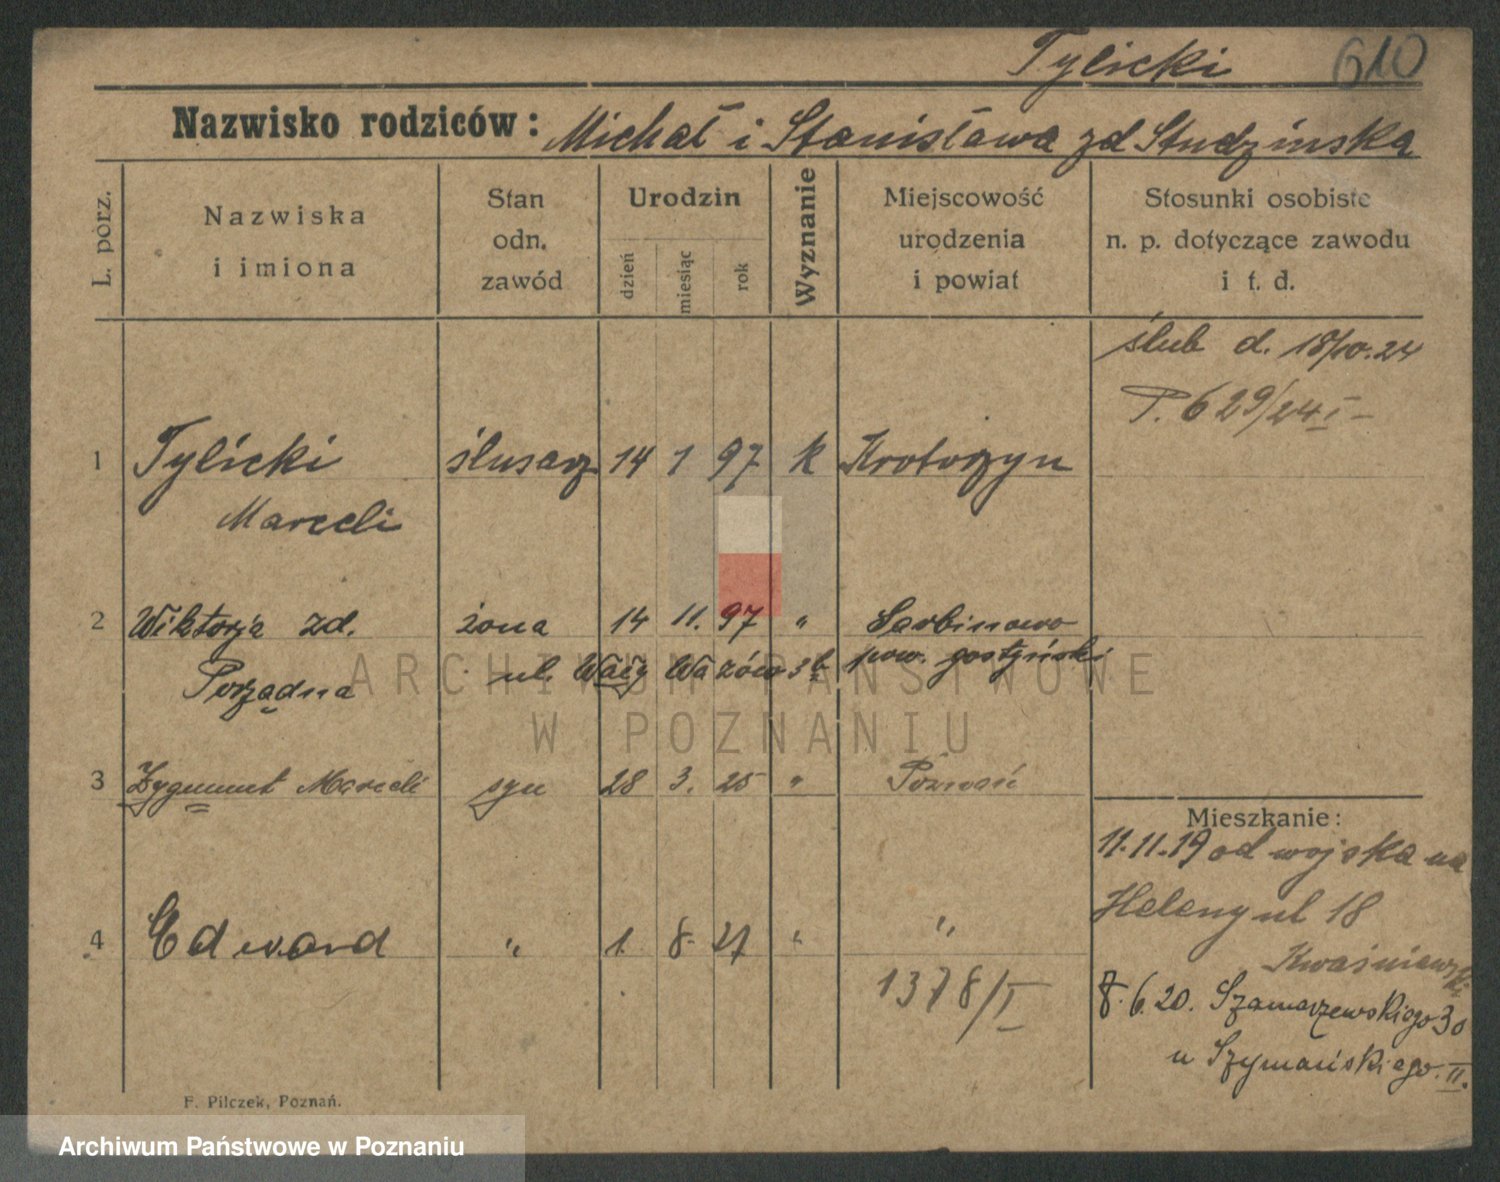 Tylicki 610
Nazwisko rodziców: Michał i Stanisława zd Studzinska
L. porz.
Nazwiska
i imiona
Stan
odn.
zawód
Urodzin
dzień
miesiąc
rok
Wyznanie
Miejscowość
urodzenia
i powiat
Stosunki osobiste
n. p. dotyczące zawodu
i t. d.
ślub d. 18/10.24
P. 629/24 I
1 Tylicki ślusarz 14 1 97 k Krotoszyn
Marceli
2 Wiktorja zd. żona 14 11. 97 " Sarbinowo
Porządna ul. Wały Wazów 3b pow. gostyński
ARCHIWUM PAŃSTWOWE
W POZNANIU
3 Zygmunt Marceli syn 28 3. 25 " Poznań
4 Edward " 1 8. 27 " "
1378/I
Mieszkanie:
11.11.19 od wojska na
Heleny ul 18
Kwaśniewski
8.6.20. Szamarzewskiego 30
u Szymańskiego. II.
F. Pilczek, Poznań.
Archiwum Państwowe w Poznaniu